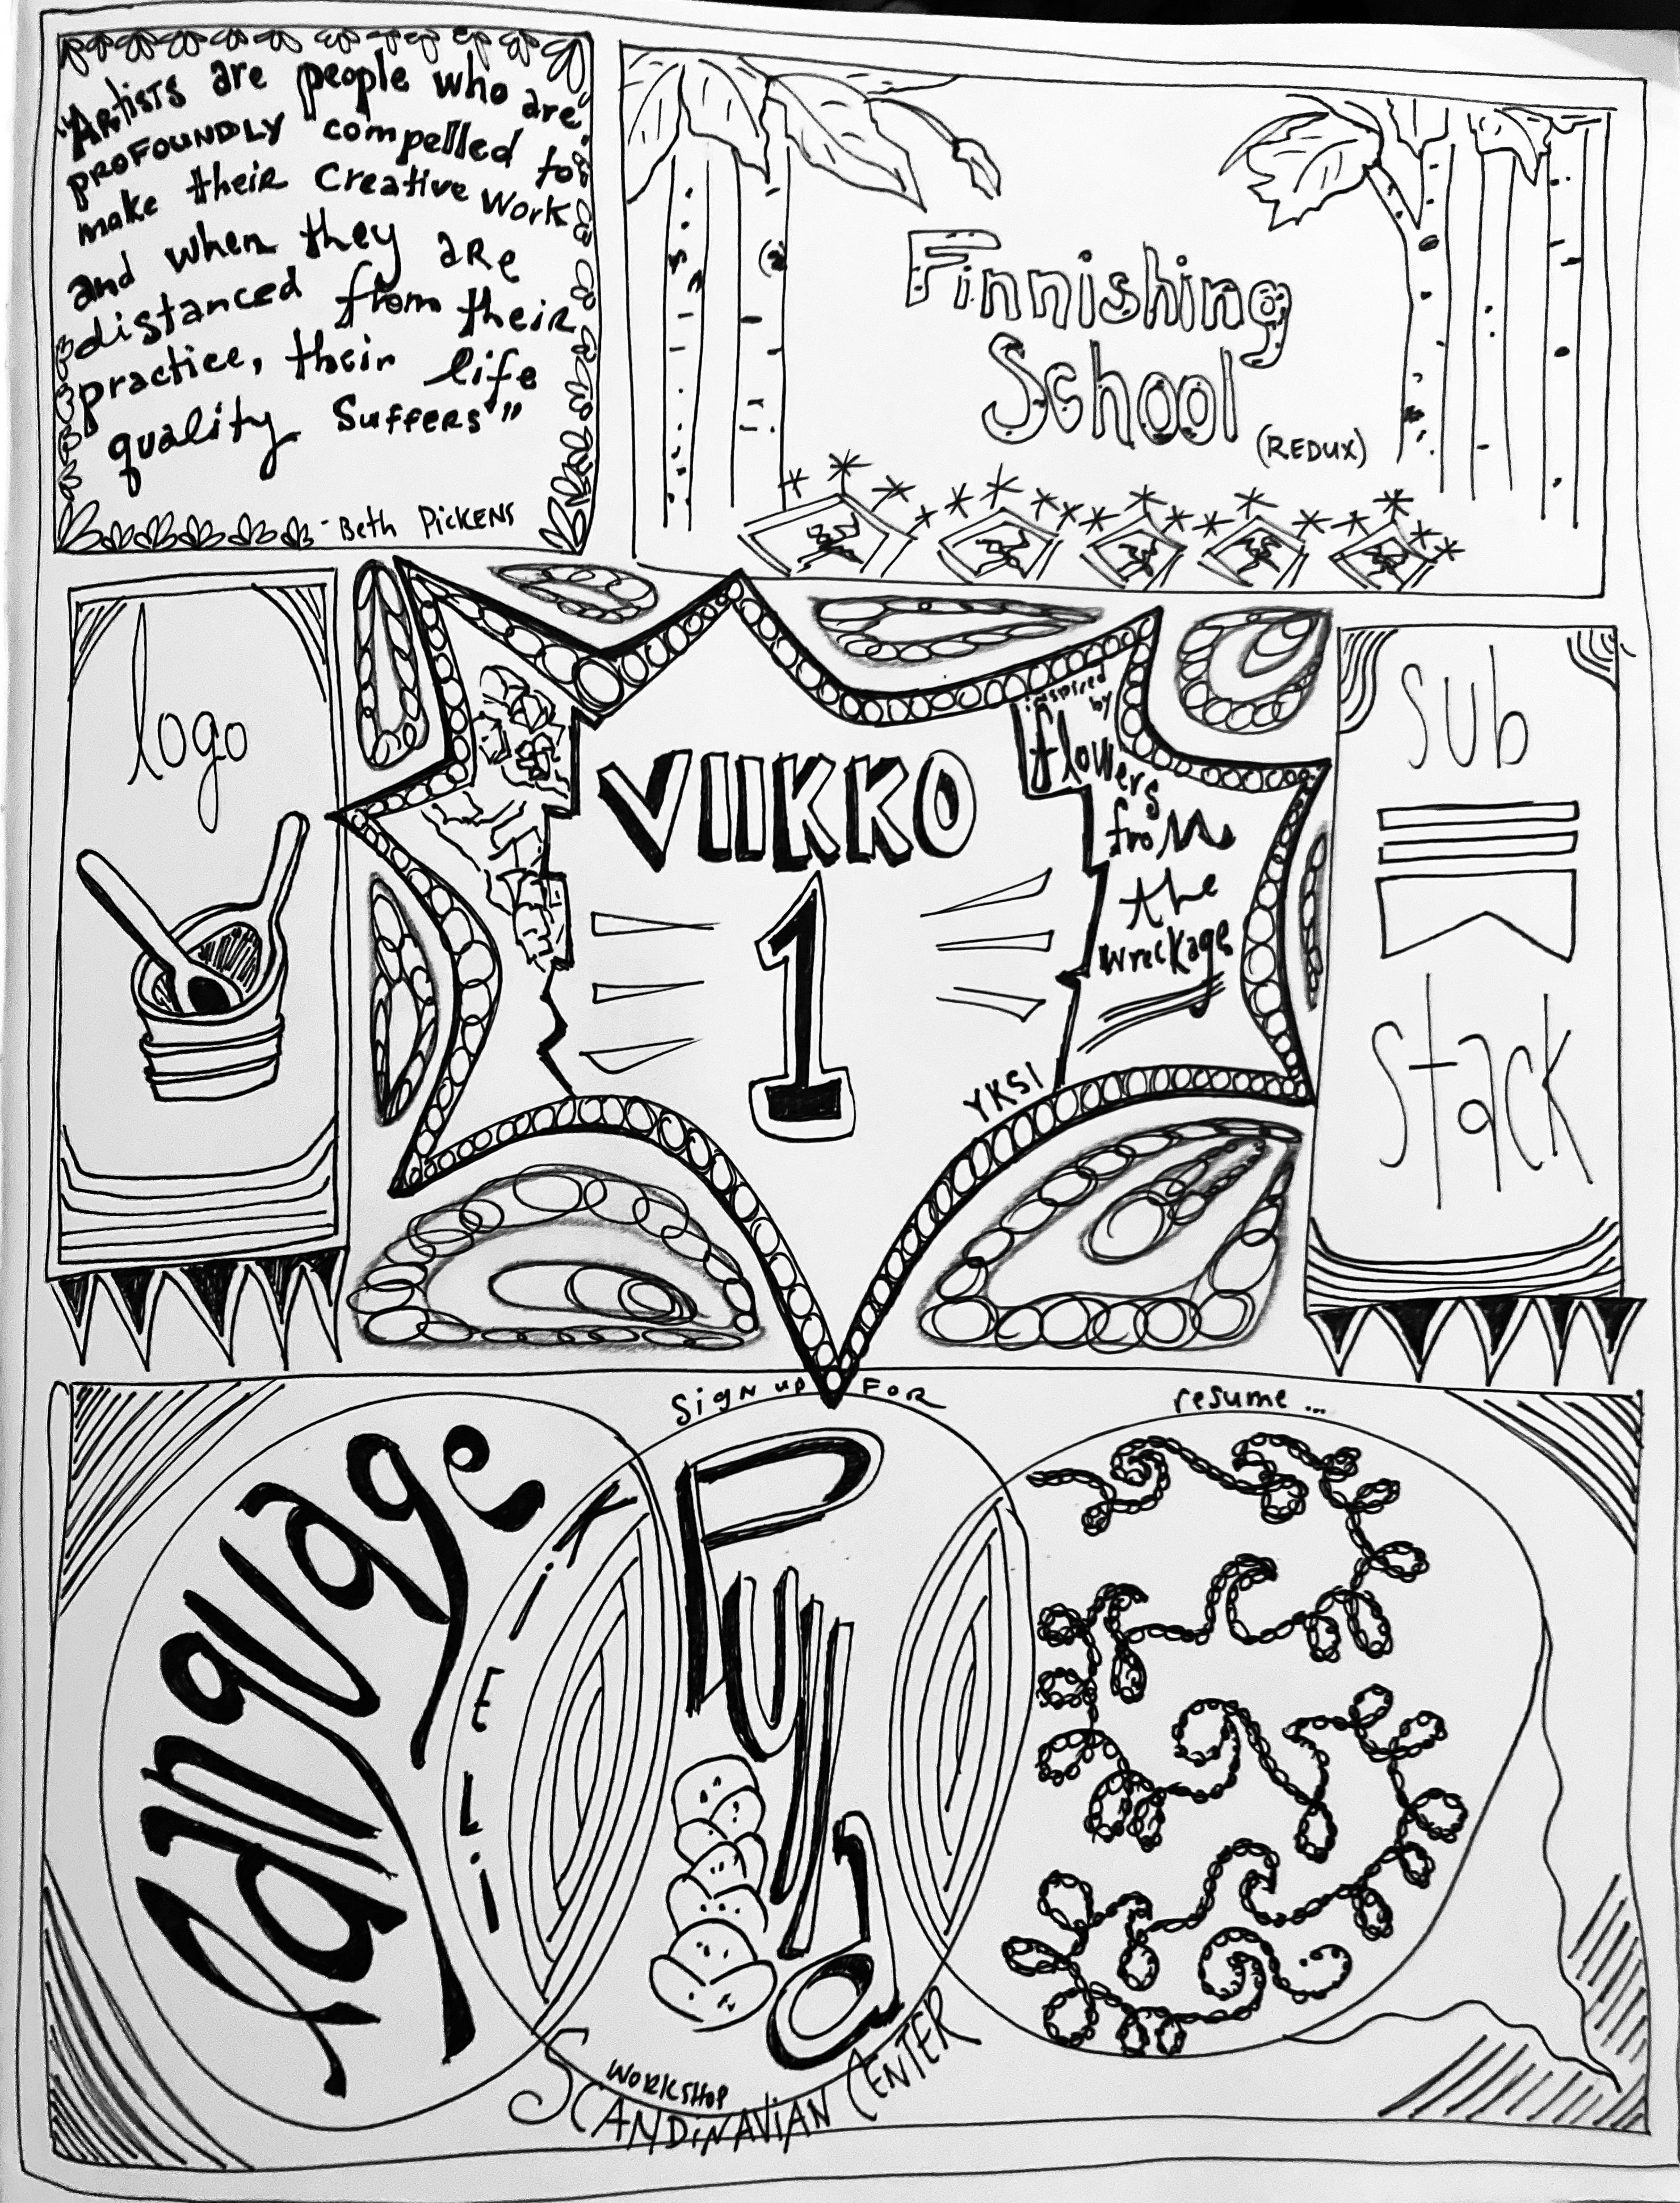 "Artists are people who are
PROFOUNDLY compelled to
make their Creative Work
and when they are
distanced from their
practice, their life
quality Suffers"
- Beth Pickens
Finnishing
School
(REDUX)
logo
VIIKKO
1
YKSI
inspired
by
flowers
from
the
wreckage
sub
stack
language
KiELi
Sign up FOR
Pulla
WORKSHOP
SCANDiNAViAN CENTER
resume...